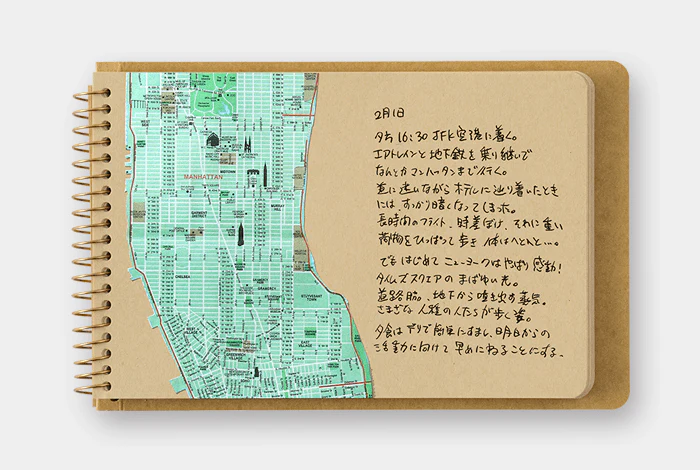 MANHATTAN
MIDTOWN
WEST SIDE
GARMENT DISTRICT
MURRAY HILL
CHELSEA
GRAMERCY
STUYVESANT TOWN
WEST VILLAGE
GREENWICH VILLAGE
EAST VILLAGE
2月1日
夕方16:30 JFK空港に着く。
エアトレインと地下鉄を乗り継いで
なんとかマンハッタンまで行く。
道に迷いながらホテルに辿り着いたとき
には、すっかり暗くなってしまった。
長時間のフライト、時差ぼけ、それに重い
荷物をひっぱって歩き体はへとへと…。
でもはじめてニューヨークはやっぱり感動!
タイムズスクエアのまばゆい光。
道路脇、地下から噴き出す蒸気。
さまざな人種の人たちが歩く姿。
夕食はデリで簡単にすまし、明日からの
活動に向けて早めにねることにする。